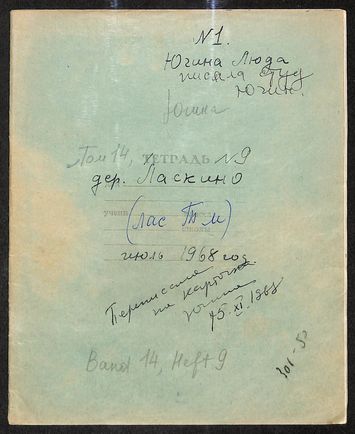 N1.
Югина Люда
писала студ
Югин.
Югина
Том 14, ТЕТРАДЬ N9
дер. Ласкино
учени
школы
(Лас Т М)
июль 1968 год
Переписана
на карточки
15.XI.1968
Band 14, Heft 9